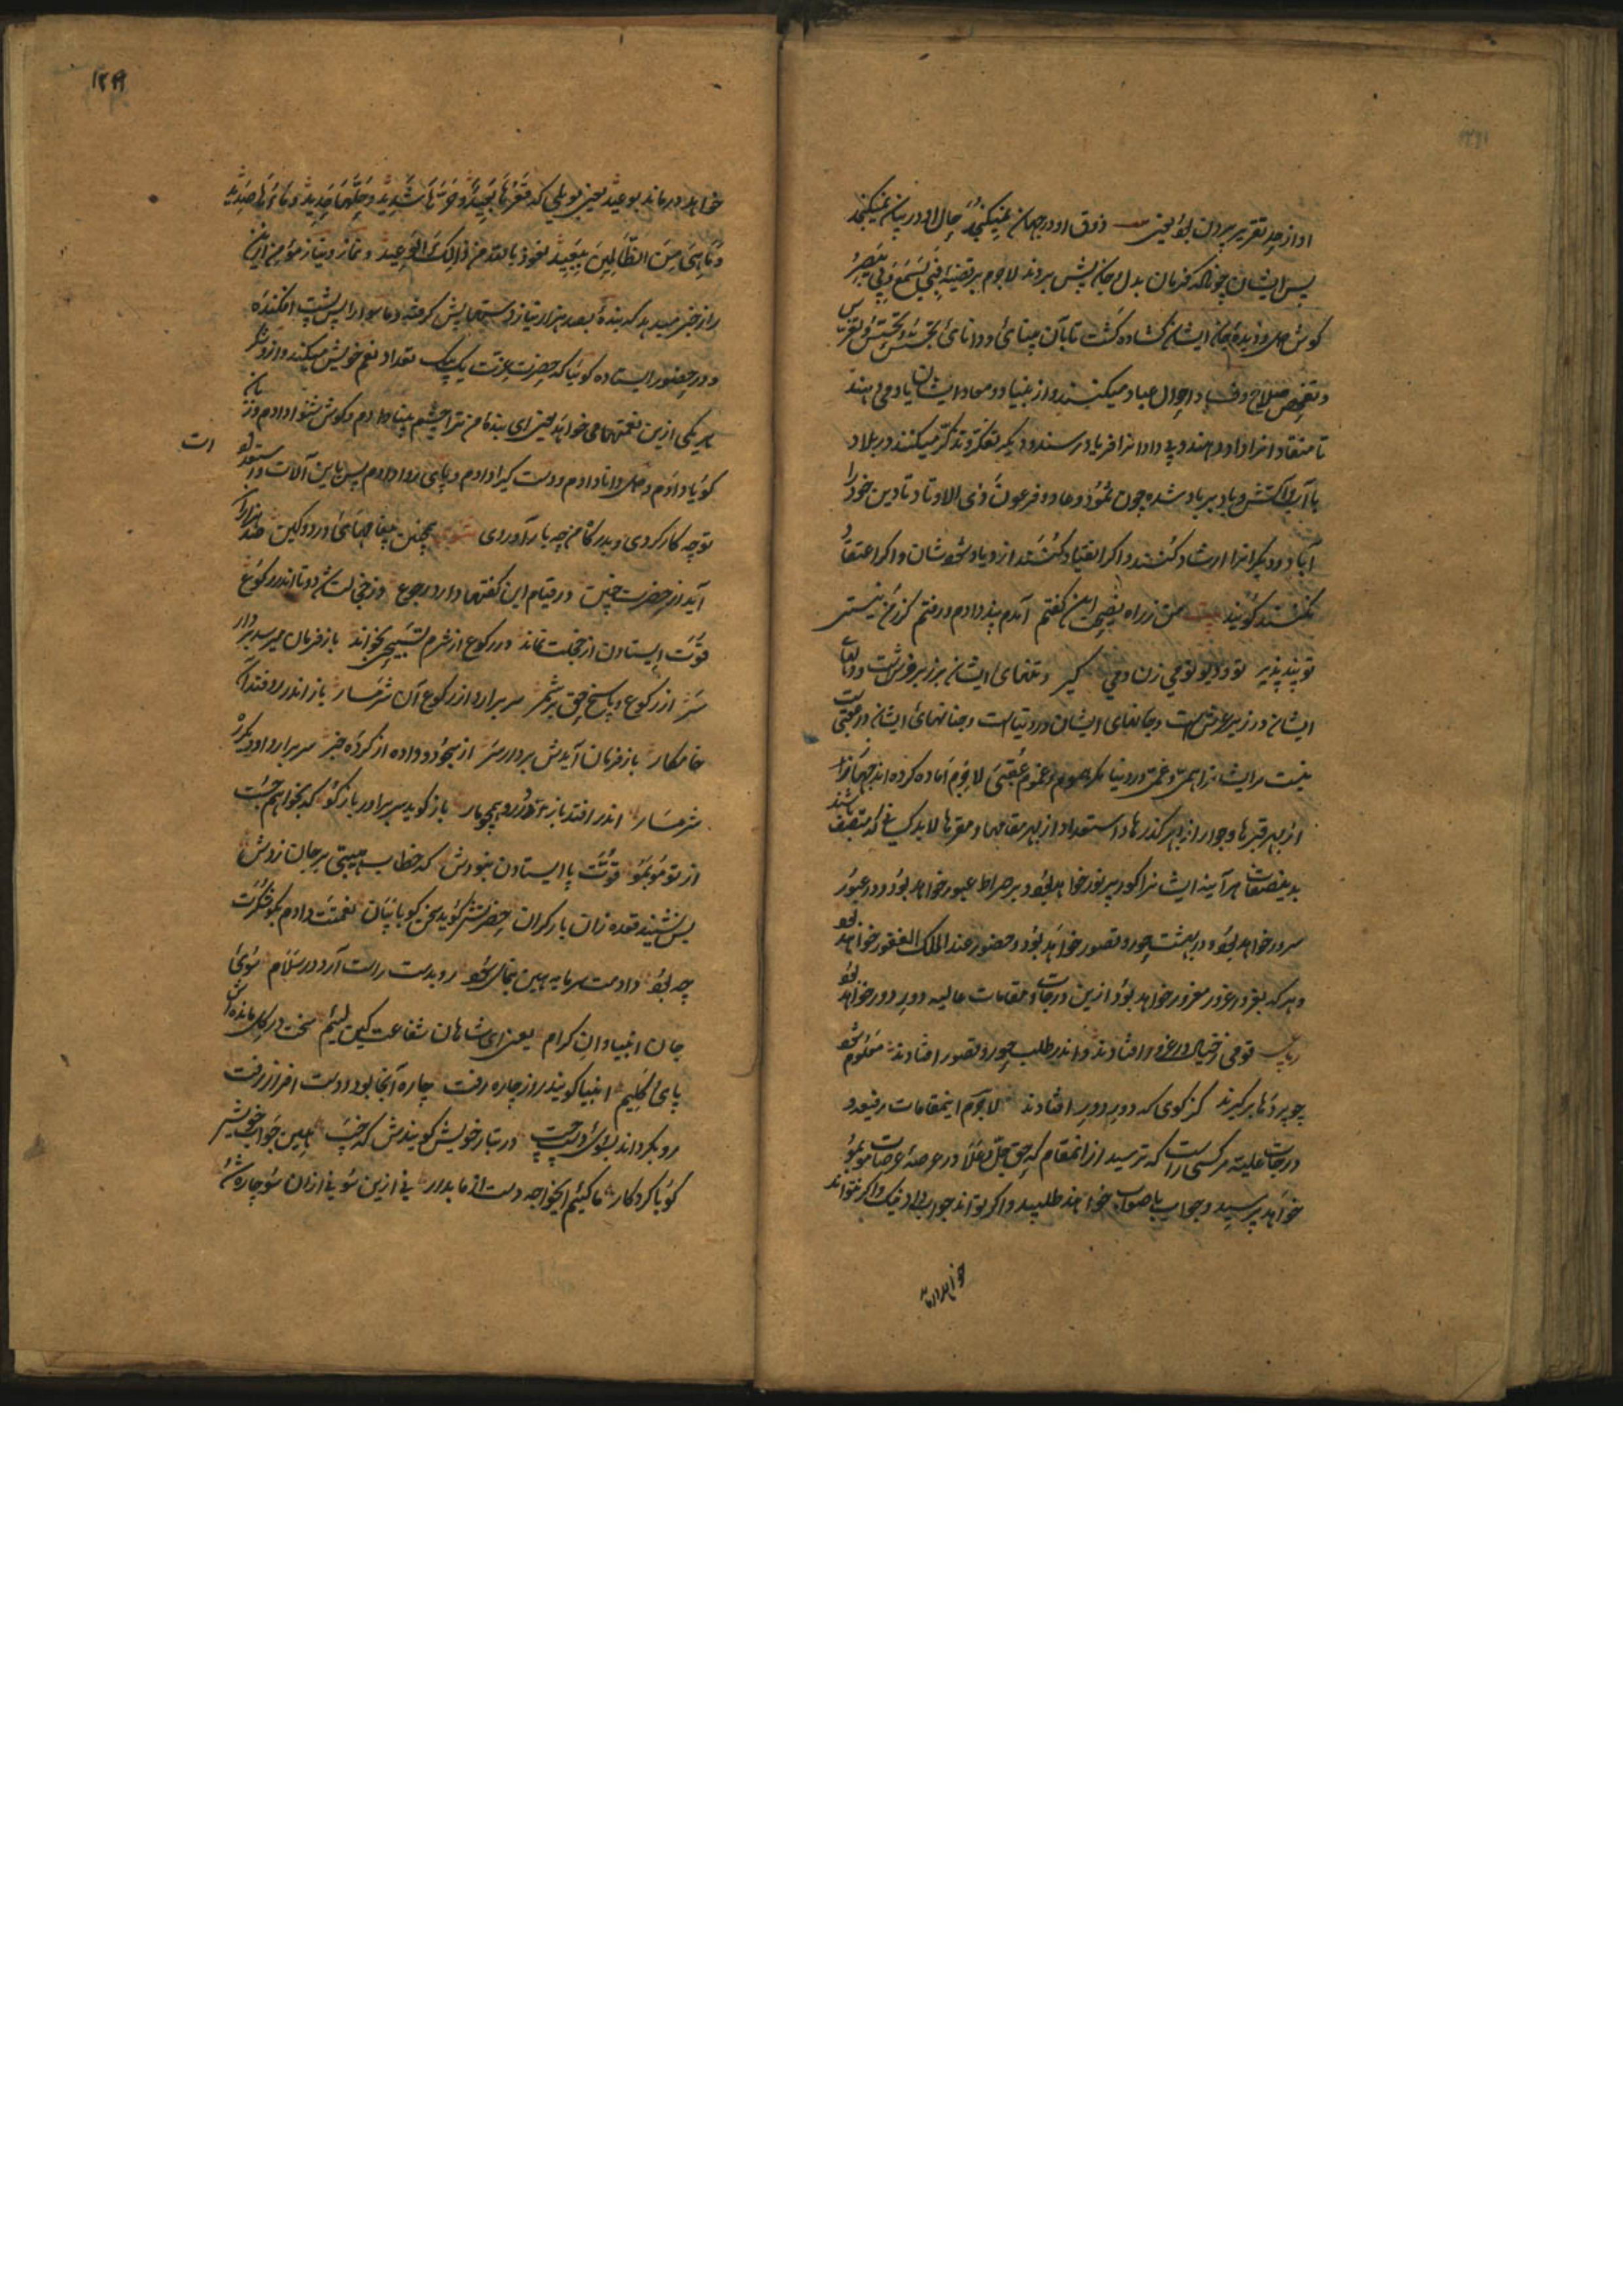 او از حد تقریر بیرون بود یعنی ذوق او در جهان نمیکنجد حال او در بیان نمیکنجد
پس ایشان چونکه فرمان بدل و جان پیش بردند لاجرم بر قضیه فبی یسمع و بی یبصر
کوش دل و دیدهٔ جان ایشان کشاده کشت تا بآن بینائی و دانائی
و تفحص صلاح و فساد احوال عباد میکنند و از بنیاد و معاد ایشان یاد می دهند
تا منقادانرا داد دهند و بیدادانرا فریاد رسند و دیکر تفکر و تذکر میکنند در بلاد
با آب و آتش و باد بر باد شده چون ثمود و عاد و فرعون ذی الاوتاد تا دین خود را
آباد و دیکرانرا ارشاد کنند و اکر انقیاد کنند از دیاد و اکر اعتقاد
نکنند کویند بیت من ز راه نصیحت این کفتم آمدم پند دادم و رفتم کر ز من نیستی
تو پند پذیر تو و دیو تو می زن و می کیر و تنهای ایشان بر زبر فرش است و دلهای
ایشان در زیر عرش است و جانهای ایشان در دنیاست و جنانهای ایشان در عقبی است
نیست مر ایشانرا همی و غمی در دنیا مکر هموم و غموم عقبی لاجرم آماده کرده اند جهازرا
از بهر قبرها و جواز از بهر کذرها و استعداد از بهر مقامها و مقرها لابد کسانی که متصف باشند
بدینصفات هر آینه ایشانرا کور پر نور خواهد بود و بر صراط عبور خواهد بود و در عبور
سرور خواهد بود و در بهشت حور و قصور خواهد بود و حضور عند الملک الغفور خواهد بود
و هر که بغرور غرور مغرور خواهد بود ازین درجات و مقامات عالیه دور دور خواهد بود
رباعی قومی ز خیال در غرور افتادند و اندر طلب حور و قصور افتادند معلوم شود
چو پردها برکیرند کز کوی که دور دور افتادند لاجرم اینمقامات رفیعه و
درجات علیه مر کسی راست که ترسید از انمقام که حق جل و علا در عرصهٔ عرصات مو بمو
خواهد پرسید و جواب با صواب خواهند طلبید و اکر تواند جواب داد فبک و اکر نتواند
خواهد درماند
۱۲۹۹
خواهد درماند بوعید یعنی بویلی که قعرها بعید و حرها شدید و حلیها حدید و ماءها صدید
و ما هی من الظالمین ببعید نعوذ بالله من ذالک الوعید و نماز و نیاز مؤمن ازین
راز خبر میدهد که بندهٔ بصد هزار نیاز دستهایش کرفته و ماسوا را پس پشت افکنده
و در حضور ایستاده کوئیا که حضرت عزت یک بیک تعداد نعم خویش میکند و ازو شکر
هر یکی ازین نعمتها می خواهد یعنی ای بندهٔ من ترا چشم بینا دادم و کوش شنوا دادم و زبان
کویا دادم و دل دانا دادم و دست کیرا دادم و پای روا دادم پس باین آلات و ادات
تو چه کار کردی و بدرکاه من چه بار آوردی مثنوی همچنین پیغامهای دردکین صد هزاران
آید از حضرت چنین در قیام این کفتها دارد رجوع وز خجالت شد دوتا اندر رکوع
قوت ایستادن از خجلت نماند در رکوع از شرم تسبیحی بخواند باز فرمان میرسد بردار
سر از رکوع و پاسخ حق بر شمر سر برارد از رکوع آن شرمسار باز اندر رو فتد آن
خامکار باز فرمان آیدش بردار سر از سجود و داده از کرده خبر سر برارد او دیکر ره
شرمسار اندر افتد باز در رو همچو مار باز کوید سر برآور باز کو که بخواهم جست
از تو مو بمو قوت پا ایستادن نبودش که خطاب هیبتی بر جان زدش
پس نشیند قعده زان بار کران حضرتش کوید سخن کو با بیان نعمتت دادم بکو شکرت
چه بود دادمت سرمایه هین بنمای سود رو بدست راست آرد در سلام سوی
جان انبیا و ان کرام یعنی ای شاهان شفاعت کین لئیم سخت در کل مانده اش
پای و کلیم انبیا کویند روز چاره رفت چاره آنجا بود و دست افزار رفت
رو بکرداند بسوی دست چپ در تبار خویش کویندش که خپ هین جواب خویش
کو با کردکار ما کئیم ایخواجه دست از ما بدار نی ازین سو نی ازان سو چاره شد